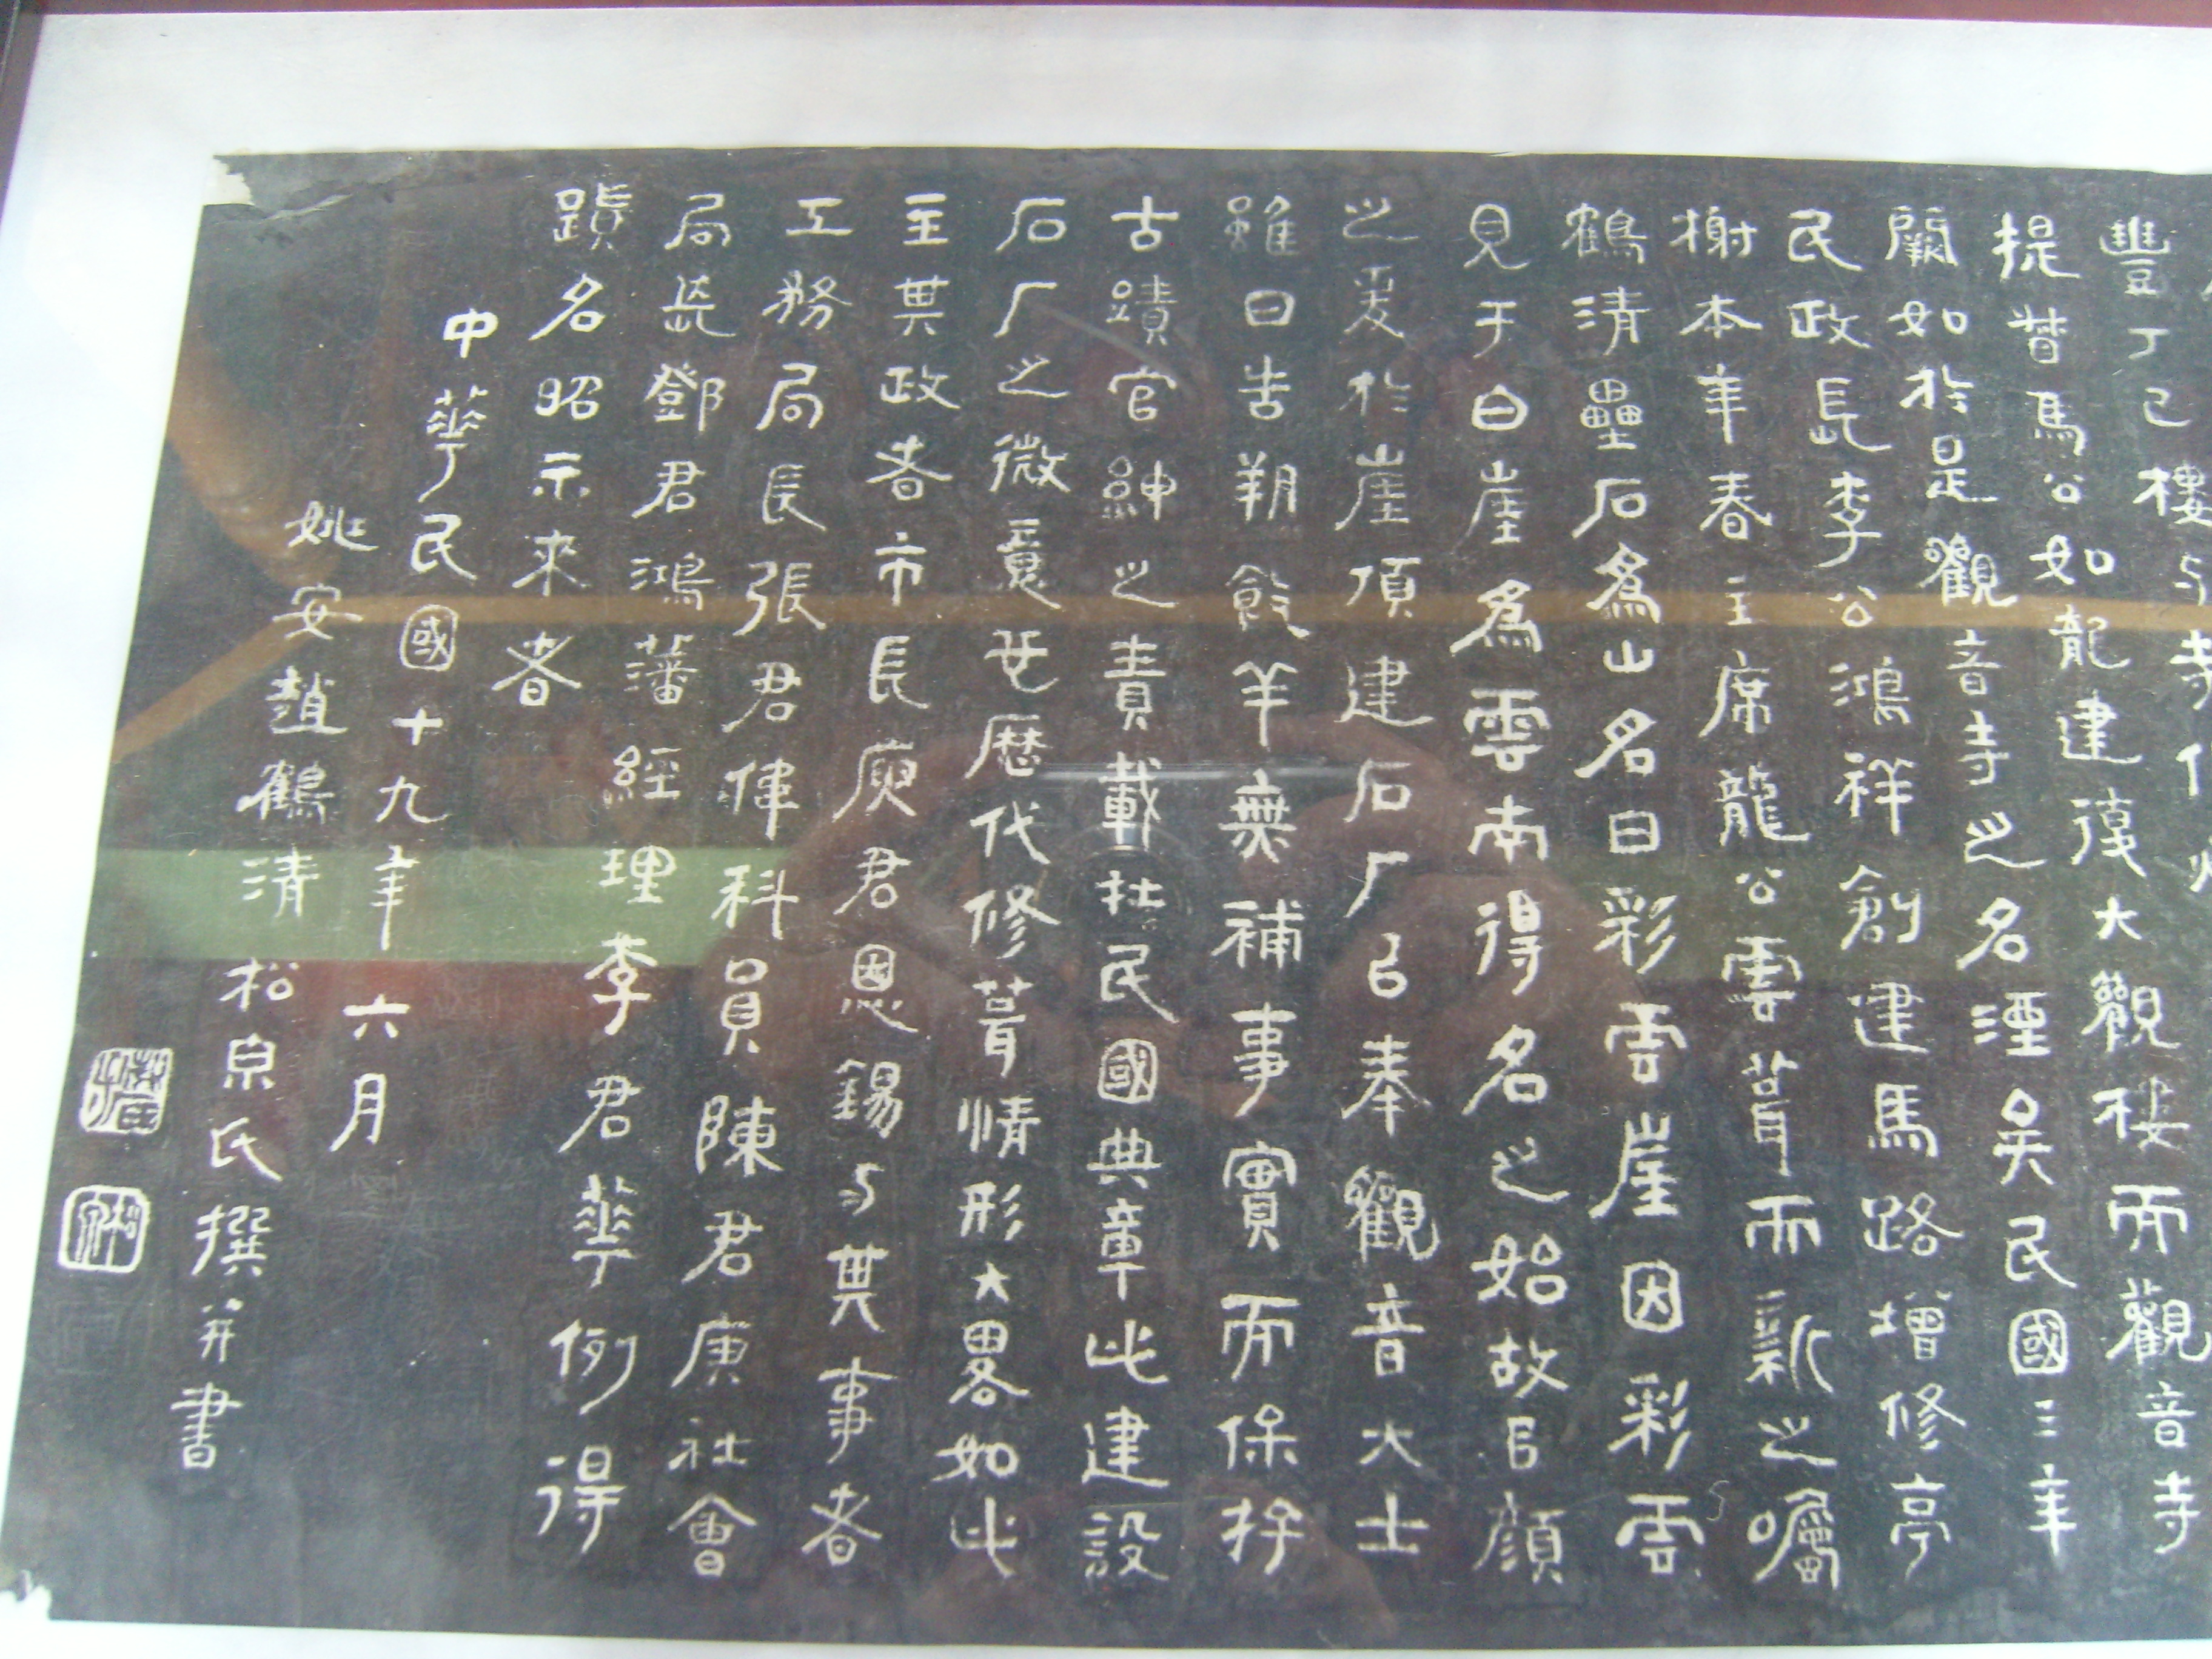 豐丁巳樓与寺
提督馬公如龍建復大觀樓而觀音寺
闕如於是觀音寺之名湮矣民國三年
民政長李公鴻祥創建馬路增修亭
榭本年春主席龍公雲葺而新之囑
鶴清壘石為山名曰彩雲崖因彩雲
見于白崖為雲南得名之始故㠯顏
之爰於崖頂建石厂㠯奉觀音大士
雖曰告朔餼羊無補事實而保存
古蹟官紳之責載在民國典章此建設
石厂之微意也歷代修葺情形大畧如此
主其政者市長庾君恩錫与其事者
工務局長張君偉科員陳君庚社會
局長鄧君鴻藩經理李君華例得
蹟名昭示來者
中華民國十九年六月
姚安趙鶴清松泉氏撰并書